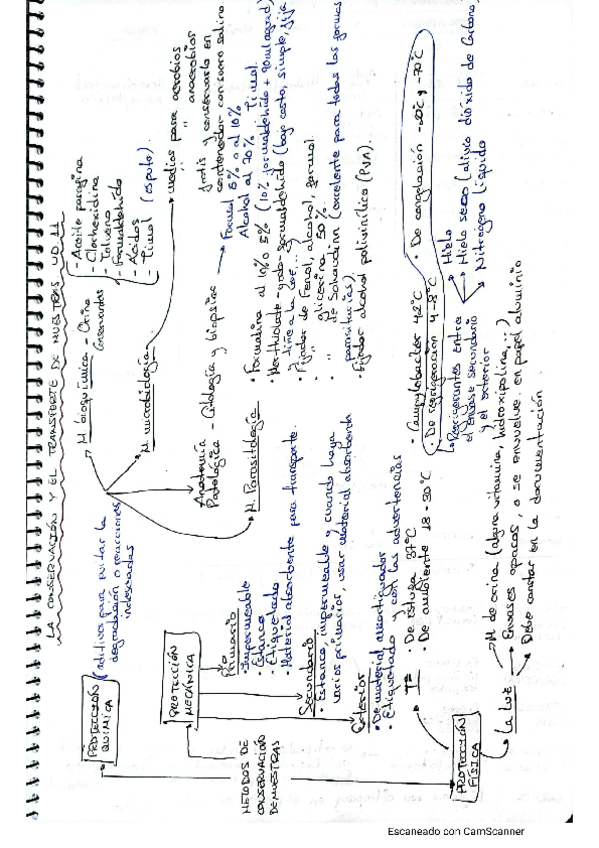 LA CONSERVACIÓN Y EL TRANSPORTE DE MUESTRAS UD.11
MÉTODOS DE
CONSERVACIÓN
DE MUESTRAS
PROTECCIÓN
QUÍMICA
(aditivos para evitar la
degradación o reacciones
indeseadas)
M. bioquímica - Orina
Conservantes
- Aceite parafina
- Clorhexidina
- Tolueno
- Formaldehido
- Ácidos
- Timol (esputo).
M. microbiología
medios para aerobios
" " anaerobios
Anatomía
Patológica - Citología y biopsias
y conservarla en
contenedor con suero salino
Formol 5% o al 10%
Alcohol al 70% Timol.
M. Parasitología
• Formalina al 10% o 5% (10% formaldehido + 90ml agua)
formaldehido (bajo costo, simple, fija
y tiñe a la vez, ...)
• Fijador de Fenol, alcohol, formol
• " glicerina 50%
• " de Schaudinn (excelente para todas las formas
parasitarias).
• Fijador alcohol polivinílico (PVA).
PROTECCIÓN
MECÁNICA
Primario
• Impermeable
• Estanco
• Etiquetado
• Material absorbente para transporte.
Secundario
• Estanco, impermeable y cuando haya
varios primarios, usar material absorbente
Exterior
• De material amortiguador
• Etiquetado y con las advertencias
PROTECCIÓN
FÍSICA
Tª
• De estufa 37ºC
• De ambiente 18-30ºC
• Campylobacter 42ºC
• De refrigeración 4-8ºC
• De congelación -20ºC y -70ºC
Refrigerantes entre
el envase secundario
y el exterior
Hielo
Hielo seco (alivio dióxido de carbono)
Nitrógeno líquido
La LUZ
M. de orina (alguna vitamina, ...)
Envases opacos, o se envuelve en papel aluminio
Debe constar en la documentación.
Escaneado con CamScanner